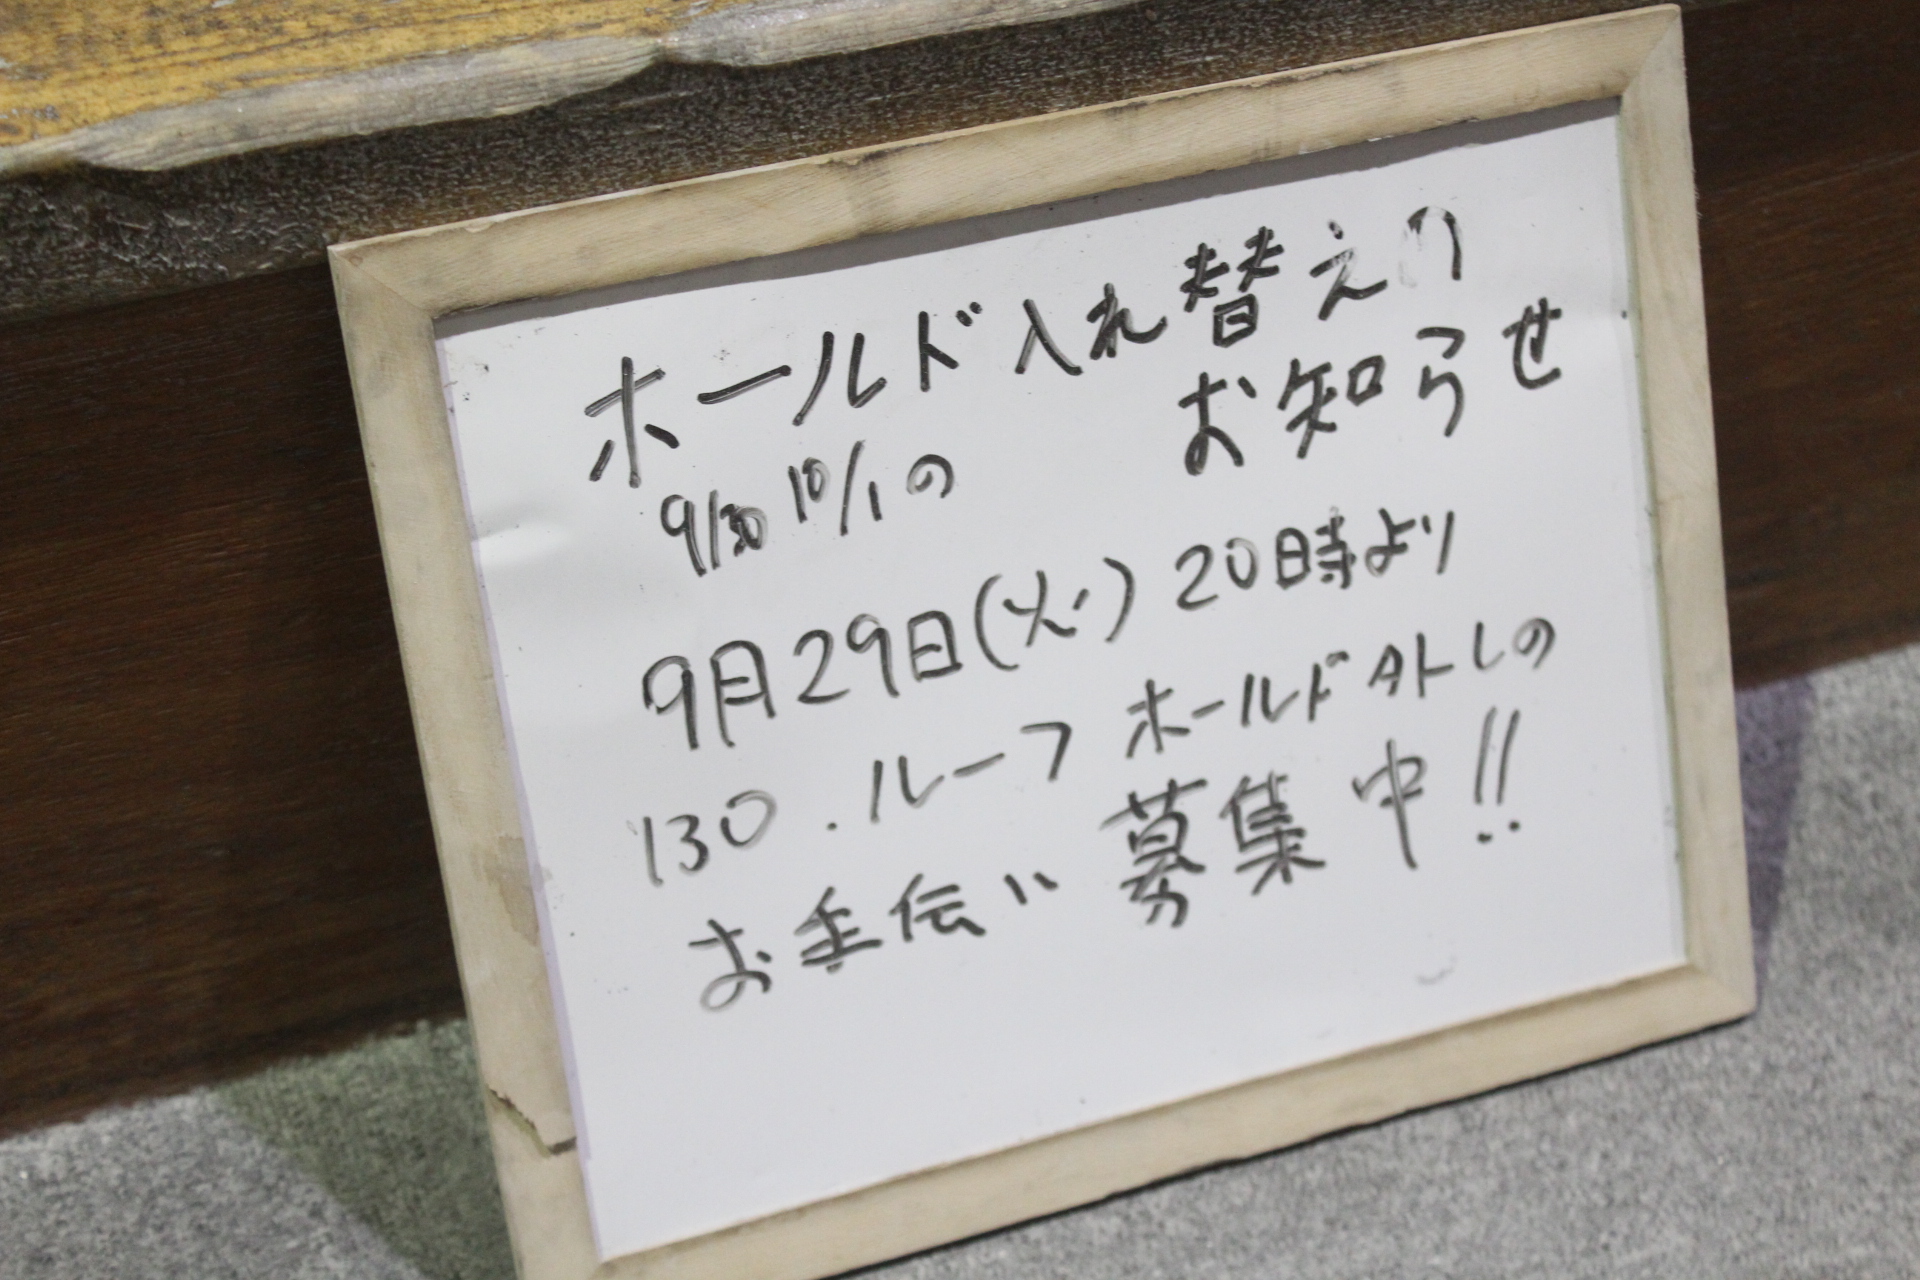 ホールド入れ替えの
お知らせ
9/30 10/1の
9月29日(火) 20時より
130.ルーフ ホールド外しの
お手伝い募集中!!